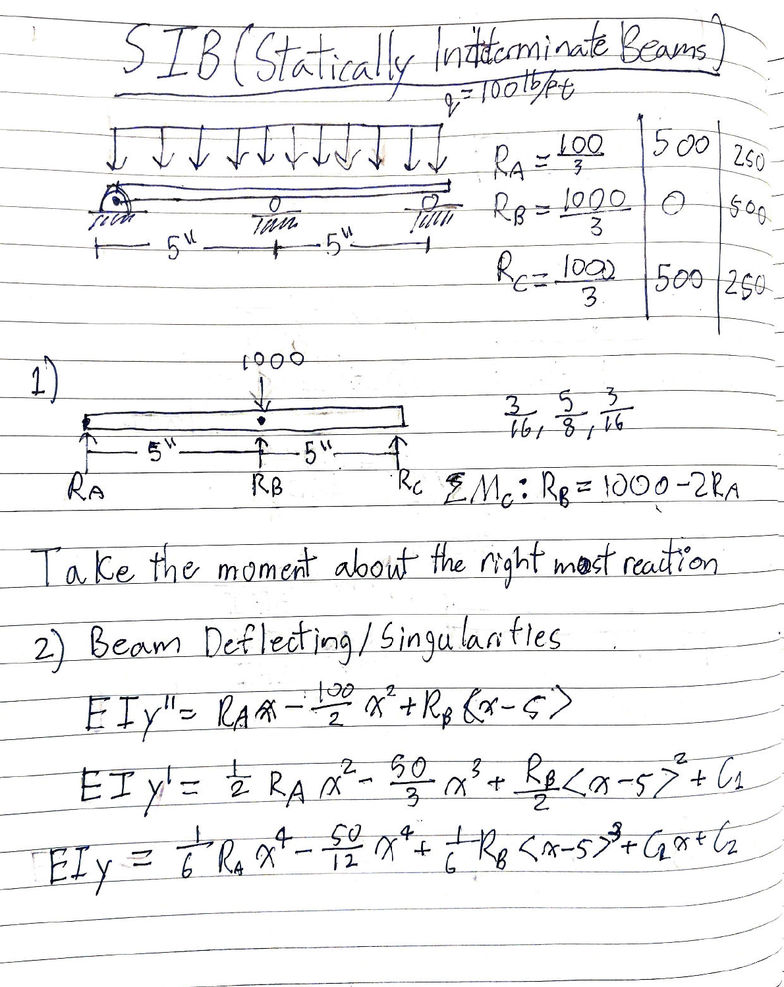 SIB (Statically Indeterminate Beams)
q=100lb/ft
R_A = 100/3 | 500 | 250
R_B = 1000/3 | 0 | 500
R_C = 1000/3 | 500 | 250
5" 5"
1)
1000
3/16, 5/8, 3/16
5" 5"
R_A R_B R_C ΣM_C: R_B = 1000-2R_A
Take the moment about the right most reaction
2) Beam Deflecting/Singularities
EIy" = R_A x - 100/2 x² + R_B <x-5>
EIy' = 1/2 R_A x² - 50/3 x³ + R_B/2 <x-5>² + C₁
EIy = 1/6 R_A x⁴ - 50/12 x⁴ + 1/6 R_B <x-5>³ + C₁x + C₂